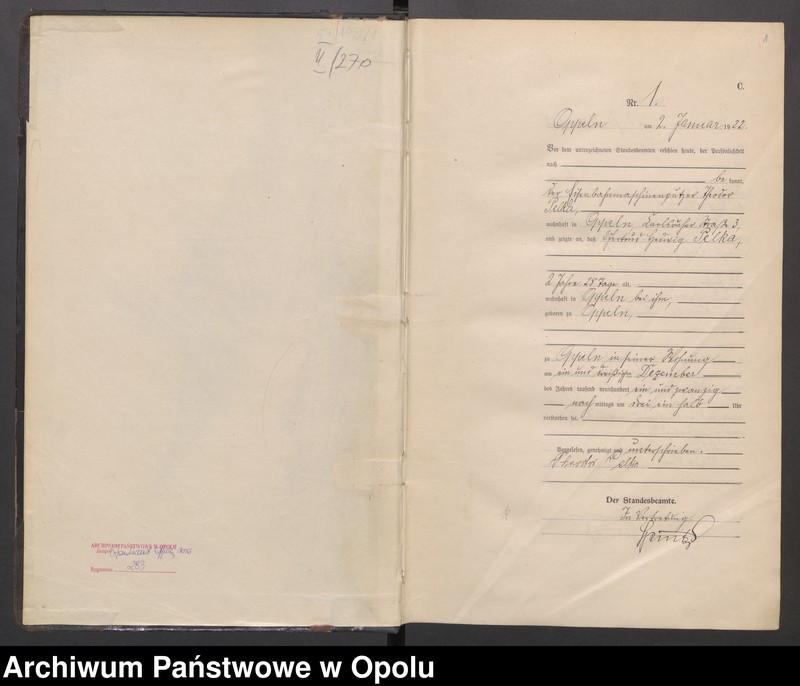 II/270
ARCHIWUM PAŃSTWOWE W OPOLU
Sygnatura 283
1
C.
Nr. 1.
Oppeln am 2. Januar 1922.
Vor dem unterzeichneten Standesbeamten erschien heute, der Persönlichkeit
nach
be kannt,
der Eisenbahnmaschinenputzer Theodor
Pelka,
wohnhaft in Oppeln, Straße 3,
und zeigte an, daß Gertrud Hedwig Pelka,
2 Jahre 28 Tage alt,
wohnhaft in Oppeln bei ihm,
geboren zu Oppeln,
zu Oppeln in seiner Wohnung
am ein und dreißigsten Dezember
des Jahres tausend neunhundert ein und zwanzig
nach mittags um drei ein halb Uhr
verstorben sei.
Vorgelesen, genehmigt und unterschrieben.
Theodor Pelka
Der Standesbeamte.
In Vertretung
Archiwum Państwowe w Opolu